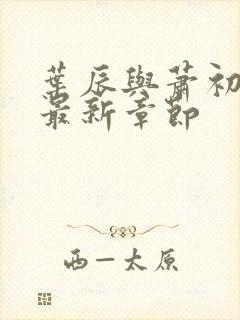 葉辰與蕭初
最新章節
西一太原